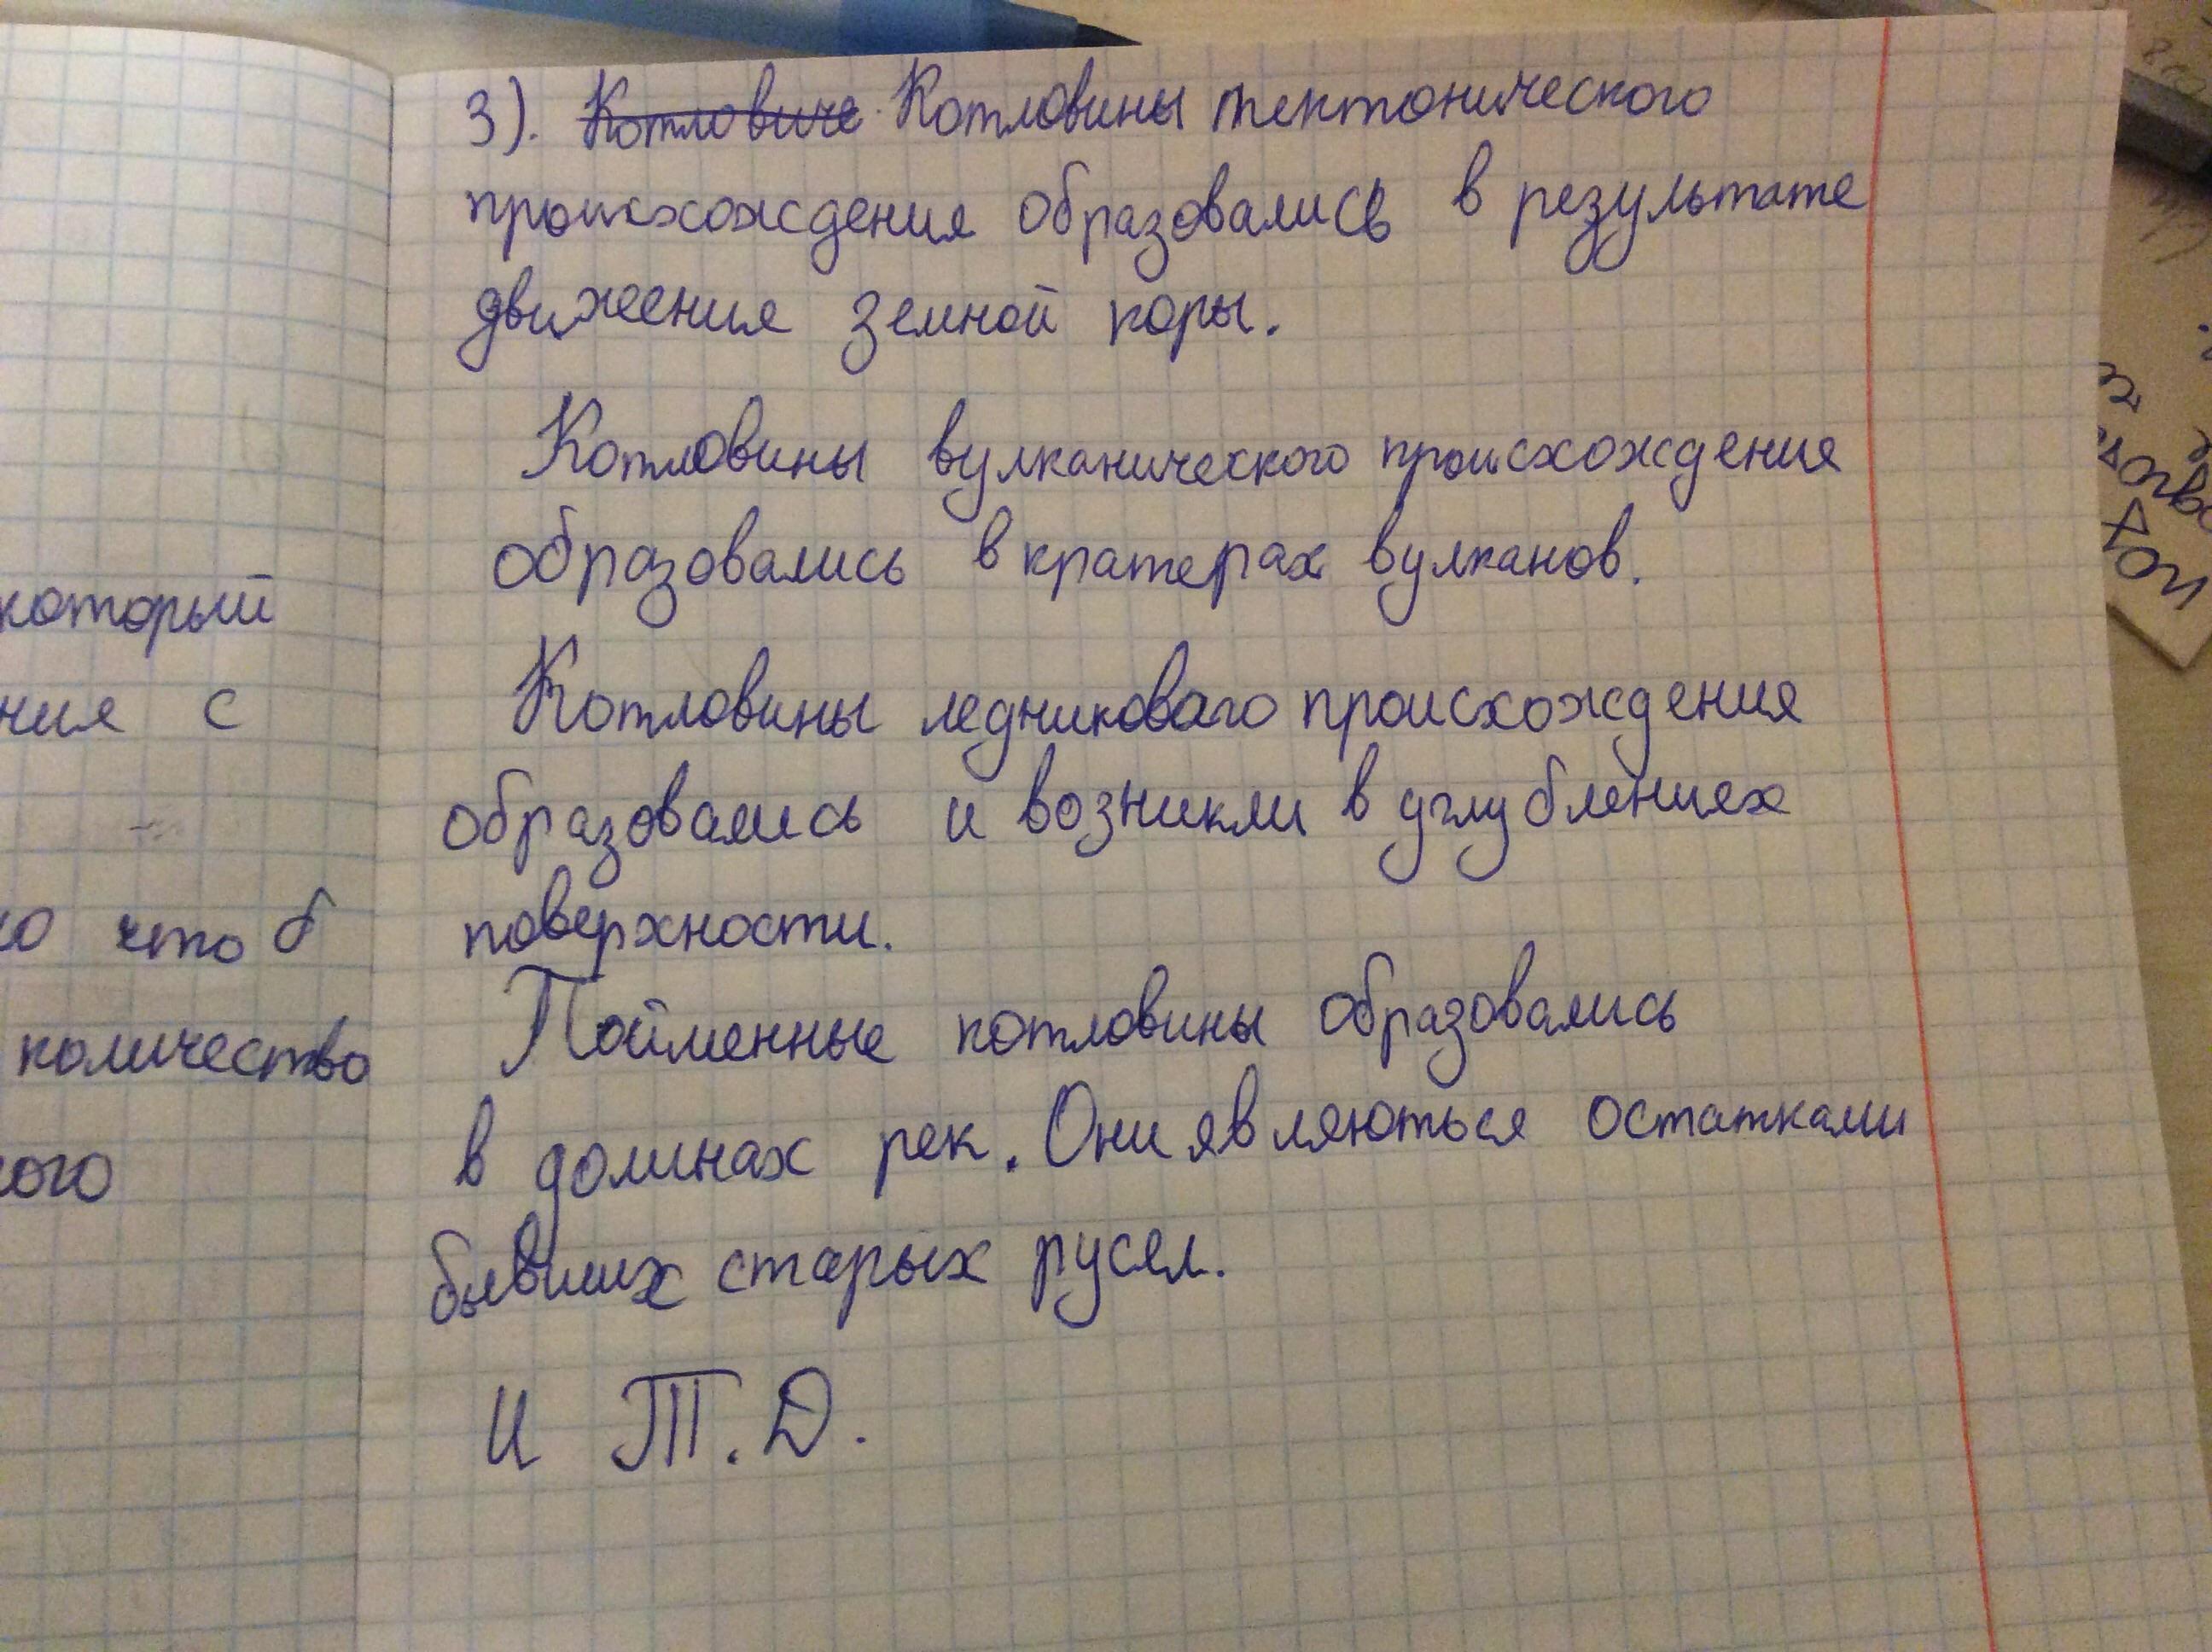 который
ния с
что б
количество
ого
3). Котловиче Котловины тектонического
происхождения образовались в результате
движения земной коры.
Котловины вулканического происхождения
образовались в кратерах вулканов.
Котловины ледникового происхождения
образовались и возникли в углублениях
поверхности.
Пойменные котловины образовались
в долинах рек. Они являються остатками
бывших старых русел.
И Т.Д.